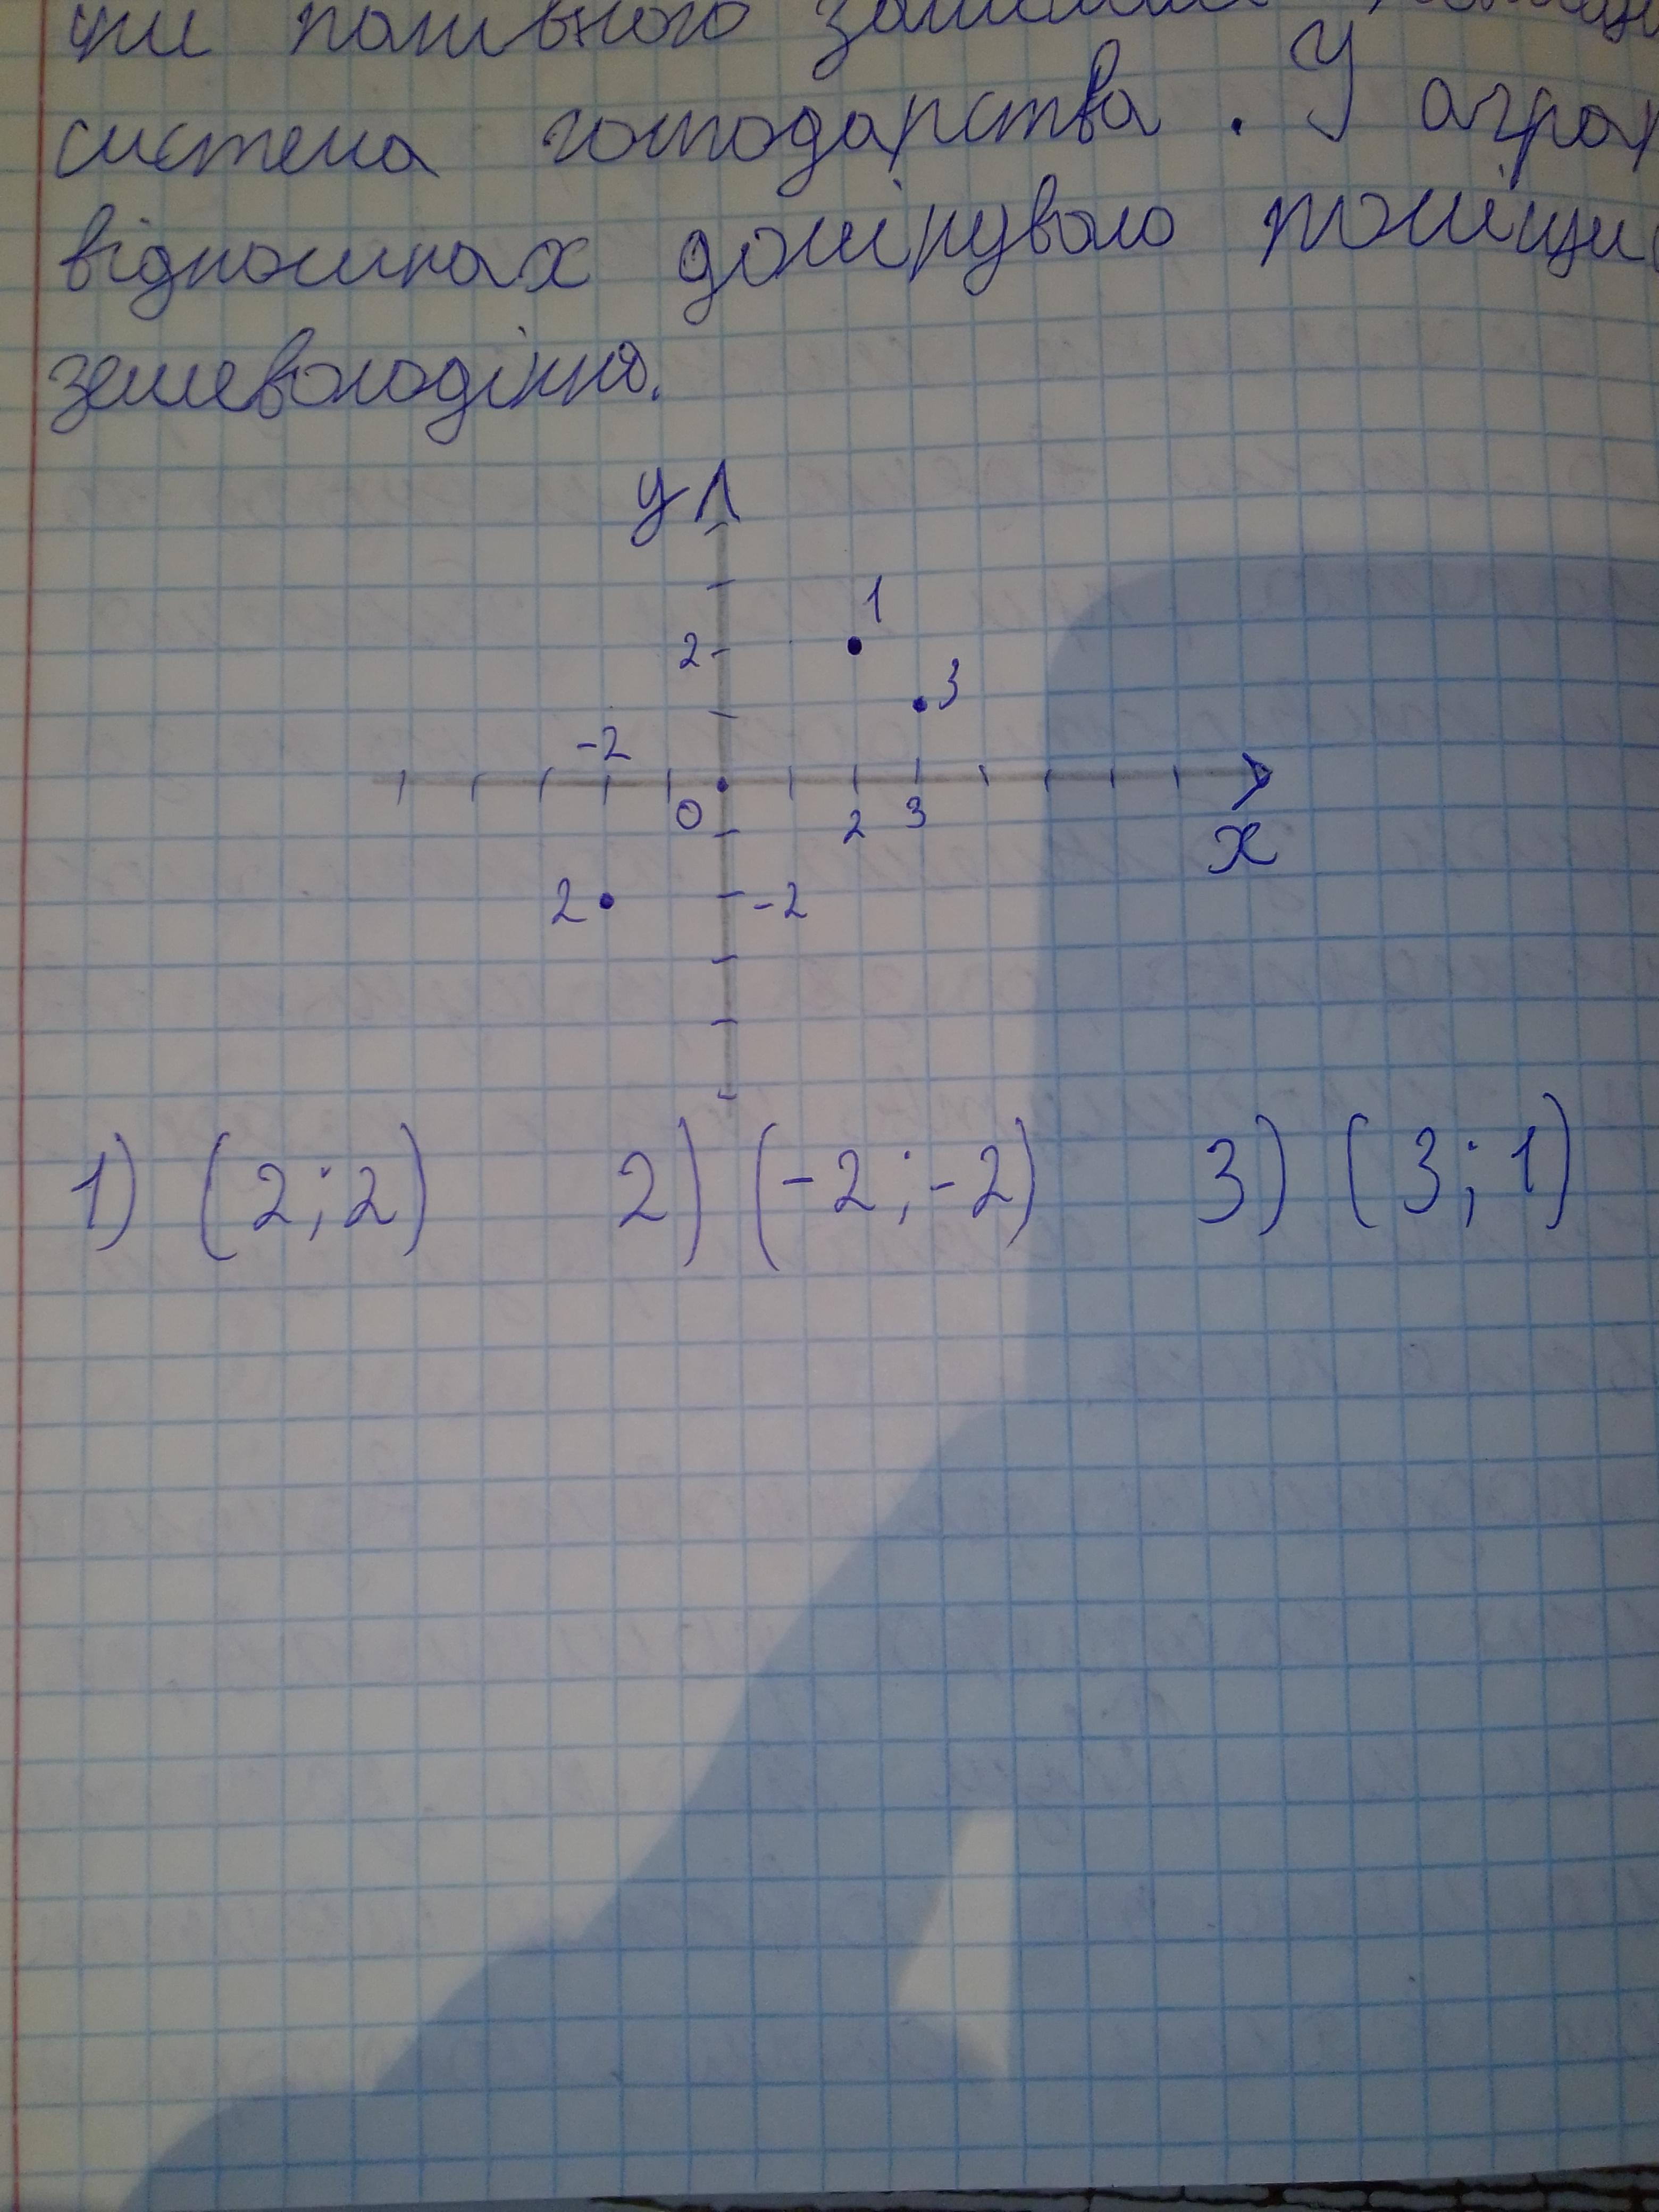 чи поливного
система господарства. У аграр
відносинах домінувало поміщи
землеволодіння.
у
1
2
3
-2
0 2 3
х
2 -2
1) (2;2) 2) (-2;-2) 3) (3;1)